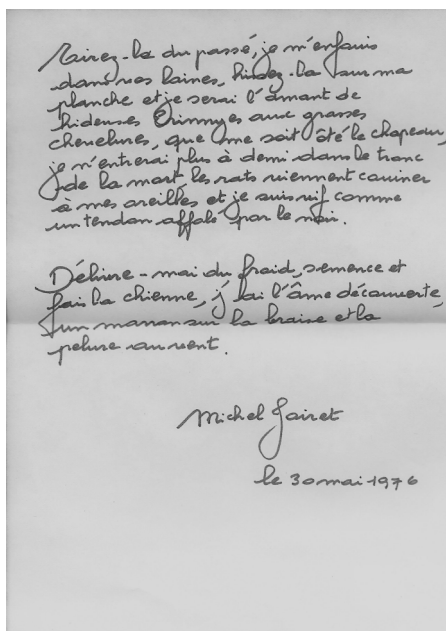 du passé, je m'enfuis
dans vos laines, hissez-la sur ma
planche et je serai l'amant de
hideuses Erinnyes aux grasses
chevelures, que me soit ôté le chapeau,
je n'entrerai plus à demi dans le tronc
de la mort, les rats viennent couiner
à mes oreilles et je suis vif comme
un tendon affalé par le noir.
Délivre-moi du froid, semence et
fais la chienne, j'ai l'âme découverte,
un marron sur la braise et la
pelure au vent.
Michel
le 30 mai 1976